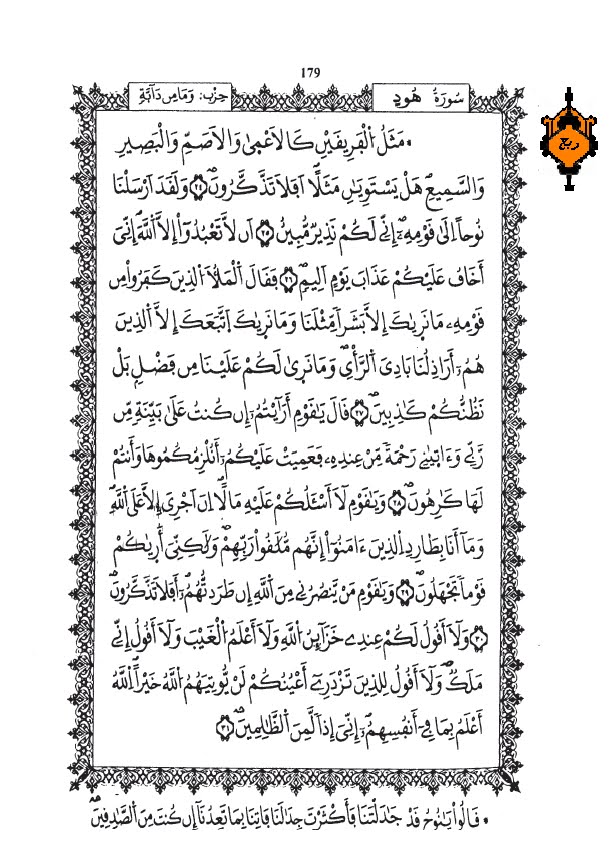 179
سُورَةُ هُودٍ
حِزْب: وَمَا مِن دَآبَّةٍ
ربع
مَثَلُ اُلْفَرِيقَيْنِ كَالَاعْمٰى وَالَاصَمِّ وَالْبَصِيرِ
وَالسَّمِيعِ هَلْ يَسْتَوِيَٰنِ مَثَلًا اَفَلَا تَذَّكَّرُونَ ٢٤ وَلَقَدَ اَرْسَلْنَا
نُوحًا اِلَىٰ قَوْمِهِۦٓ إِنِّي لَكُمْ نَذِيرٌ مُّبِينٌ ٢٥ اَن لَّا تَعْبُدُوٓاْ إِلَّا اَللَّهَ إِنِّيَ
أَخَافُ عَلَيْكُمْ عَذَابَ يَوْمٍ اَلِيمٍ ٢٦ فَقَالَ اَلْمَلَأُ اُلذِينَ كَفَرُواْ مِن
قَوْمِهِۦ مَا نَرٰيكَ إِلَّا بَشَرًا مِّثْلَنَا وَمَا نَرٰيكَ اَتَّبَعَكَ إِلَّا اَلذِينَ
هُمُۥٓ أَرَاذِلُنَا بَادِيَ اَلرَّأْيِ وَمَا نَرٰىٰ لَكُمْ عَلَيْنَا مِن فَضْلِۭ بَلْ
نَظُنُّكُمْ كَٰذِبِينَ ٢٧ قَالَ يَٰقَوْمِ أَرَٰيْتُمُۥٓ إِن كُنتُ عَلَىٰ بَيِّنَةٍ مِّن
رَّبِّي وَءَاتٰينِي رَحْمَةً مِّنْ عِندِهِۦ فَعَمِيَتْ عَلَيْكُمُۥٓ أَنُلْزِمُكُمُوهَا وَأَنتُمْ
لَهَا كَٰرِهُونَ ٢٨ وَيَٰقَوْمِ لَآ أَسْـَٔلُكُمْ عَلَيْهِ مَالًا اِنَ اَجْرِيَ إِلَّا عَلَى اَللَّهِ
وَمَآ أَنَا بِطَارِدِ اِلذِينَ ءَامَنُوٓاْ إِنَّهُم مُّلَٰقُواْ رَبِّهِمْ وَلَٰكِنِّيَ أَرٰيكُمْ
قَوْمًا تَجْهَلُونَ ٢٩ وَيَٰقَوْمِ مَنْ يَّنصُرُنِي مِنَ اَللَّهِ إِن طَرَدتُّهُمُۥٓ أَفَلَا تَذَّكَّرُونَ
٣٠ وَلَآ أَقُولُ لَكُمْ عِندِي خَزَآئِنُ اُللَّهِ وَلَآ أَعْلَمُ اُلْغَيْبَ وَلَآ أَقُولُ إِنِّي
مَلَكٌ وَلَآ أَقُولُ لِلذِينَ تَزْدَرِيٓ أَعْيُنُكُمْ لَنْ يُّوتِيَهُمُ اُللَّهُ خَيْرًا اِللَّهُ
أَعْلَمُ بِمَا فِيٓ أَنفُسِهِمُۥٓ إِنِّيَ إِذًا لَّمِنَ اَلظَّٰلِمِينَ ٣١
قَالُواْ يَٰنُوحُ قَدْ جَٰدَلْتَنَا فَأَكْثَرْتَ جِدَٰلَنَا فَاتِنَا بِمَا تَعِدُنَآ إِن كُنتَ مِنَ اَلصَّٰدِقِينَ